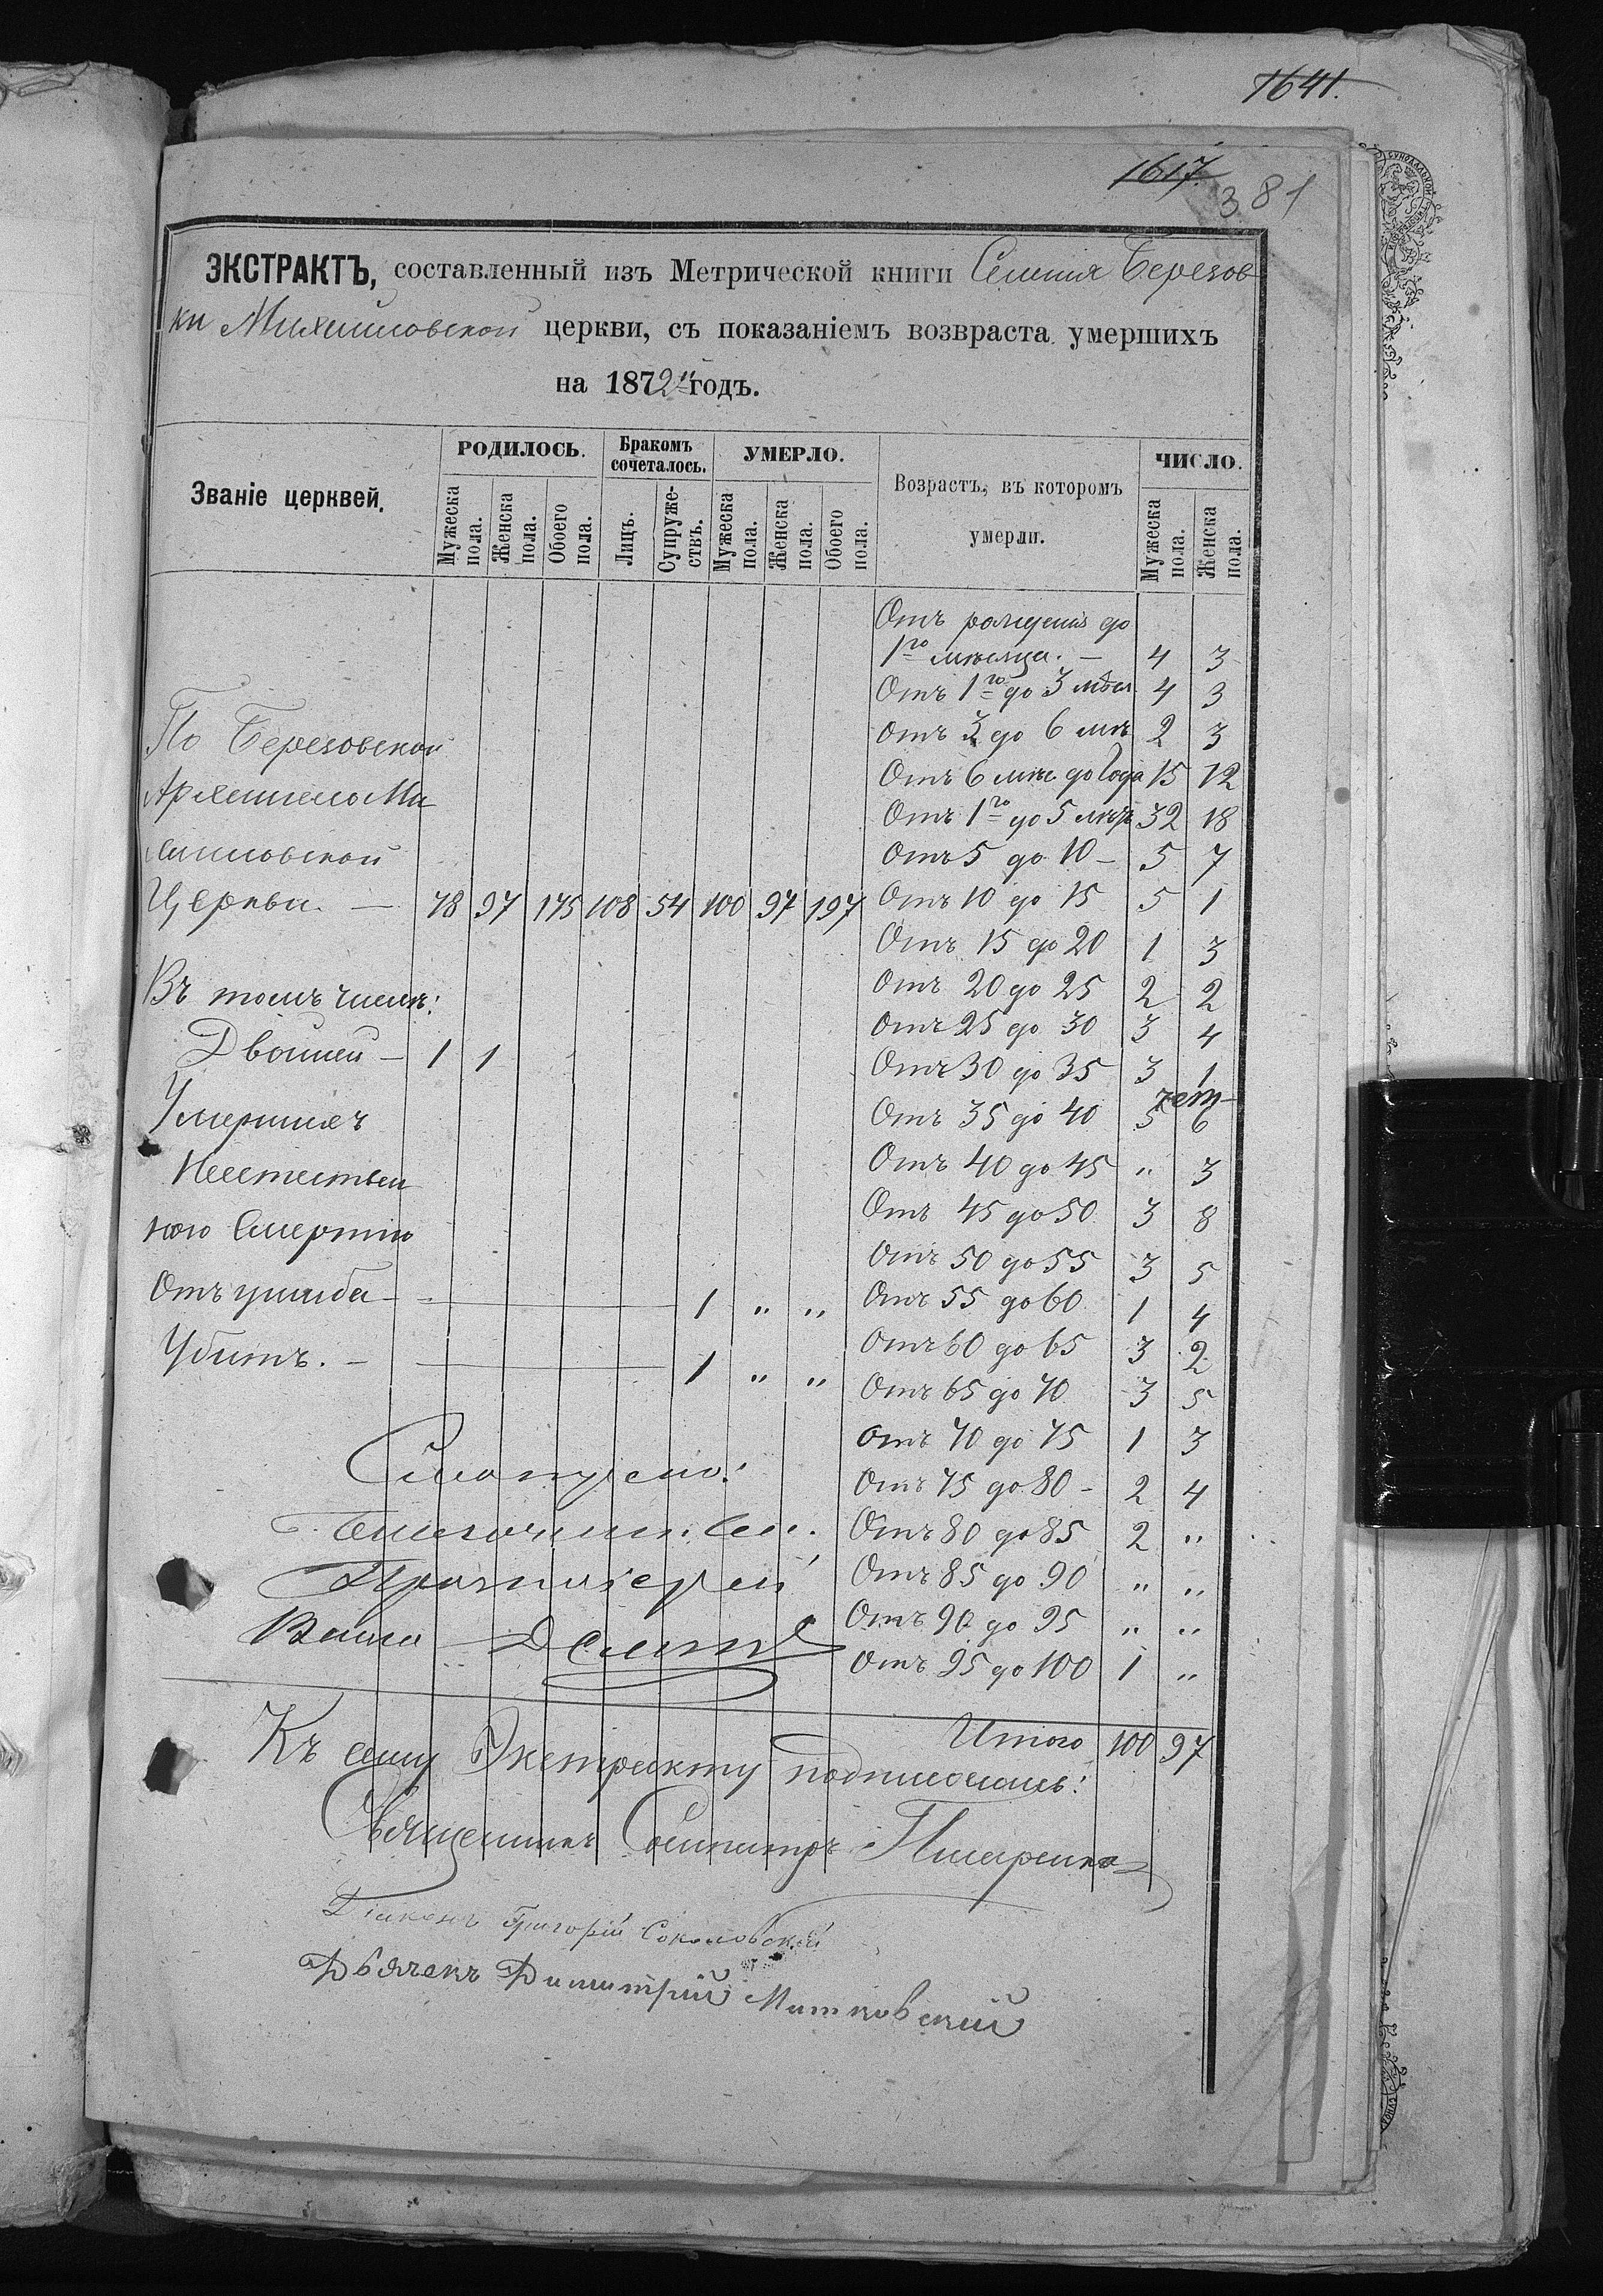 1641.
1617.
381
ЭКСТРАКТЪ, составленный изъ Метрической книги Селенія Березов
ки Михаиловской церкви, съ показаніемъ возвраста умершихъ
на 1872й годъ.
Званіе церквей. РОДИЛОСЬ. Бракомъ сочеталось. УМЕРЛО. Возрастъ, въ которомъ умерли. ЧИСЛО.
Мужеска пола. Женска пола. Обоего пола. Лицъ. Супружествъ. Мужеска пола. Женска пола. Обоего пола. Мужеска пола. Женска пола.
Отъ рожденія до
1го мѣсяца. — 4 3
Отъ 1го до 3 мѣся 4 3
По Березовской Отъ 3 до 6 мѣ 2 3
Отъ 6 мѣс до Года 15 12
Архангело Ми Отъ 1го до 5 лѣтъ 32 18
хаиловской Отъ 5 до 10 — 5 7
Церкви. — 78 97 175 108 54 100 97 197 Отъ 10 до 15 5 1
Отъ 15 до 20 1 3
Въ томъ числѣ: Отъ 20 до 25 2 2
Отъ 25 до 30 3 4
Двойней — 1 1 Отъ 30 до 35 3 1
чет
Умершихъ Отъ 35 до 40 5 6
Неестествен Отъ 40 до 45 " 3
ною Смертію Отъ 45 до 50 3 8
Отъ 50 до 55 3 5
Отъ ушиба — 1 " " Отъ 55 до 60 1 4
Убитъ. — 1 " " Отъ 60 до 65 3 2
Отъ 65 до 70 3 5
Отъ 70 до 75 1 3
Смотрелъ: Отъ 75 до 80 - 2 4
Отъ 80 до 85 2 "
Протоіерей Отъ 85 до 90 " "
Отъ 90 до 95 " "
Отъ 95 до 100 1 "
Итого 100 97
Къ сему Экстракту подписались:
Священникъ
Діаконъ Григорій Соколовскій
Дьячекъ Димитрій Митковскій